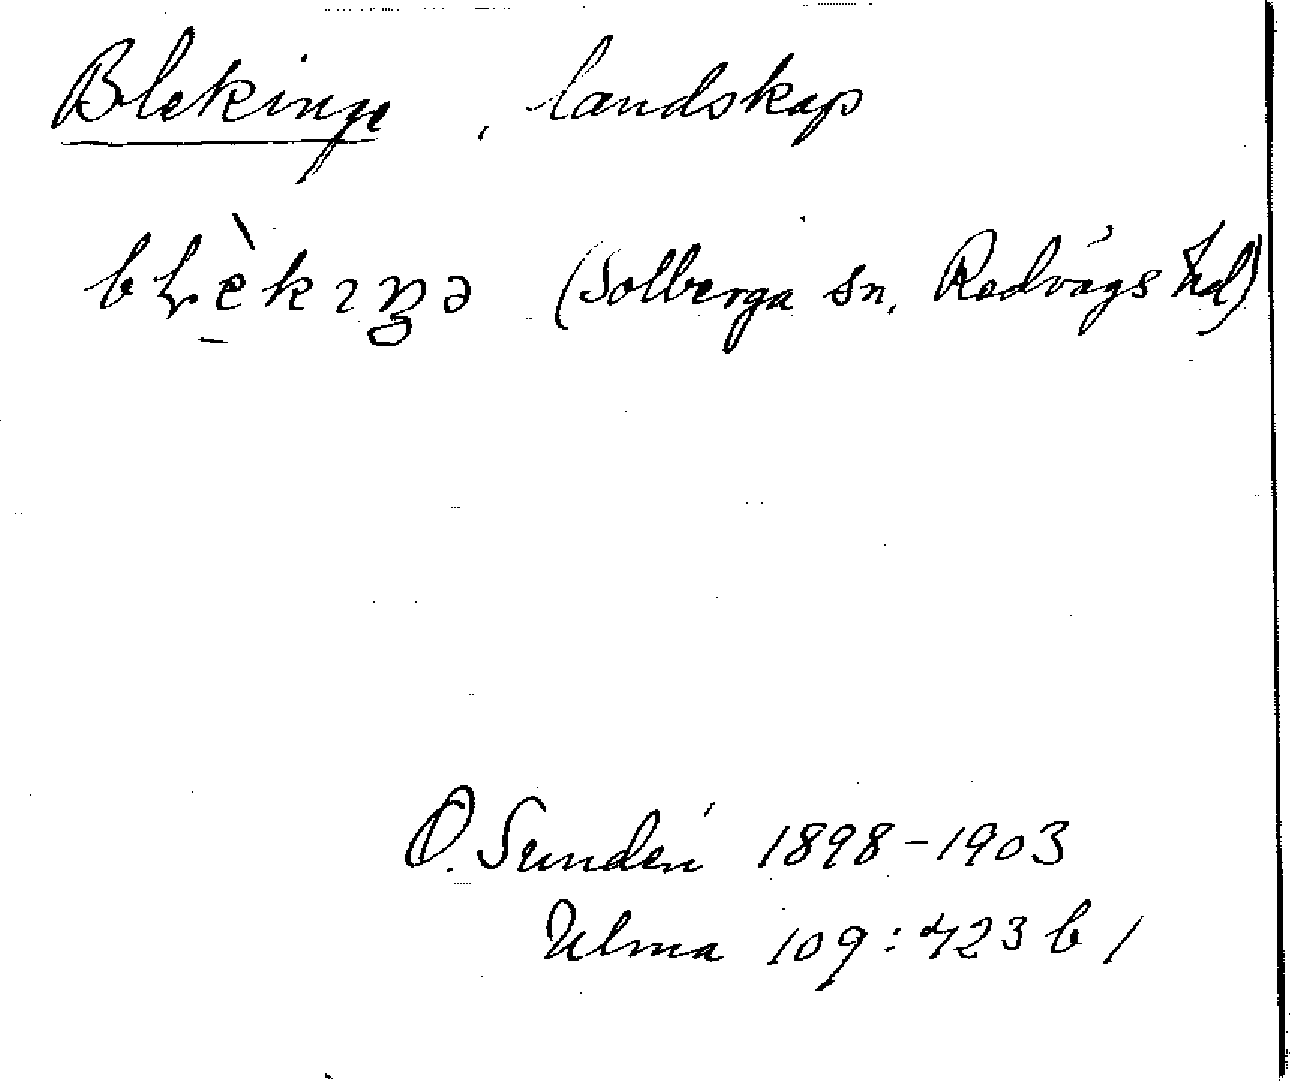 Blekinge, landskap
(Solberga sn, Redvägs hd)
O. Sundén 1898-1903
Ulma 109:423 b 1